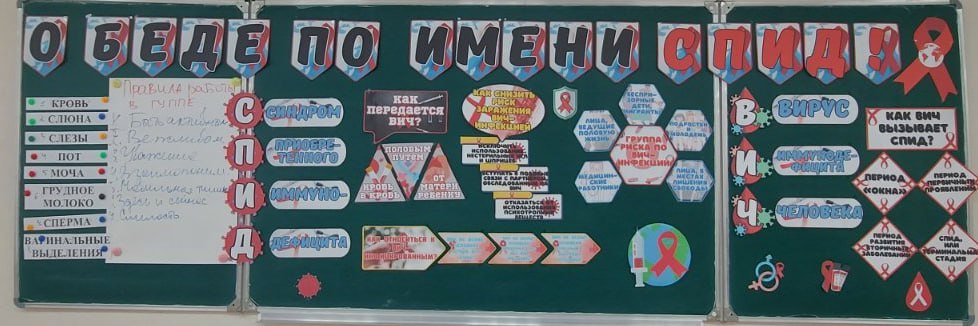 О БЕДЕ ПО ИМЕНИ СПИД!
КРОВЬ
СЛЮНА
СЛЕЗЫ
ПОТ
МОЧА
ГРУДНОЕ
МОЛОКО
СПЕРМА
ВАГИНАЛЬНЫЕ
ВЫДЕЛЕНИЯ
Правила работы
в группе
С
СИНДРОМ
П
ПРИОБРЕ-
ТЕННОГО
И
ИММУНО-
Д
ДЕФИЦИТА
КАК
ПЕРЕДАЕТСЯ
ВИЧ?
ПОЛОВЫМ
ПУТЕМ
КРОВЬ
В КРОВЬ
ОТ
МАТЕРИ
РЕБЕНКУ
КАК СНИЗИТЬ
РИСК
ЗАРАЖЕНИЯ
ВИЧ-
ИНФЕКЦИЕЙ
ИСКЛЮЧИТЬ
ИСПОЛЬЗОВАНИЕ
НЕСТЕРИЛЬНЫХ
И ШПРИЦЕВ
ВСТУПАТЬ В ПОЛОВЫЕ
СВЯЗИ С ПАРТНЕРОМ,
ОБСЛЕДОВАННЫМ НА
ВИЧ
ОТКАЗАТЬСЯ ОТ
ИСПОЛЬЗОВАНИЯ
ПСИХОТРОПНЫХ
ВЕЩЕСТВ
КАК ОТНОСИТЬСЯ К
ИНФИЦИРОВАННЫМ?
БЕСПРИ-
ЗОРНЫЕ
ДЕТИ,
МИГРАНТЫ
ЛИЦА,
ВЕДУЩИЕ
ПОЛОВУЮ
ЖИЗНЬ
ПОДРОСТКИ
МОЛОДЕЖЬ
ГРУППА
РИСКА ПО
ВИЧ-
ИНФЕКЦИИ
МЕДИЦИН-
СКИЕ
РАБОТНИКИ
ЛИЦА, В
МЕСТАХ
ЛИШЕНИЯ
СВОБОДЫ
В
ВИРУС
И
ИММУНОДЕ-
ФИЦИТА
Ч
ЧЕЛОВЕКА
КАК ВИЧ
ВЫЗЫВАЕТ
СПИД?
ПЕРИОД
«ОКНА»
ПЕРИОД
ПЕРВИЧНЫХ
ПРОЯВЛЕНИЙ
ПЕРИОД
РАЗВИТИЯ
ВТОРИЧНЫХ
ЗАБОЛЕВАНИЙ
СПИД,
ИЛИ
ТЕРМИНАЛЬНАЯ
СТАДИЯ